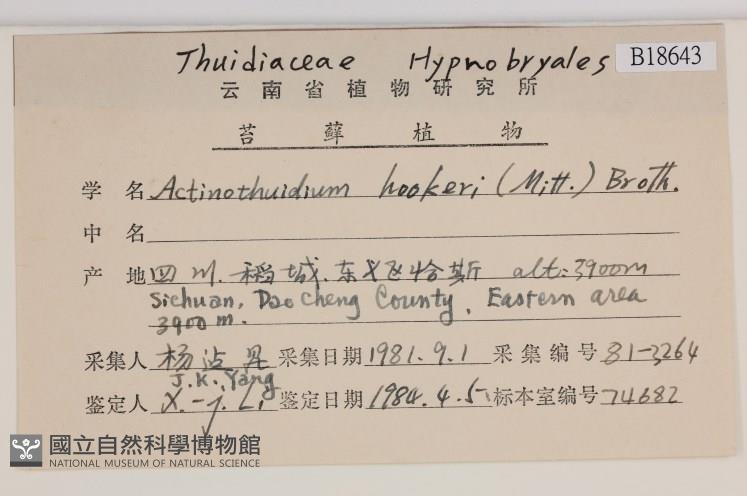 Thuidiaceae Hypnobryales B18643
云南省植物研究所
苔藓植物
学名 Actinothuidium hookeri (Mitt.) Broth.
中名
产地 四川.稻城.东 恰斯 alt: 3900m
Sichuan, Dao cheng County, Eastern area
3900 m.
采集人 杨 采集日期 1981.9.1 采集编号 81-3264
J.K. Yang
鉴定人 X.-j. Li 鉴定日期 1984.4.5 标本室编号 74682
國立自然科學博物館
NATIONAL MUSEUM OF NATURAL SCIENCE